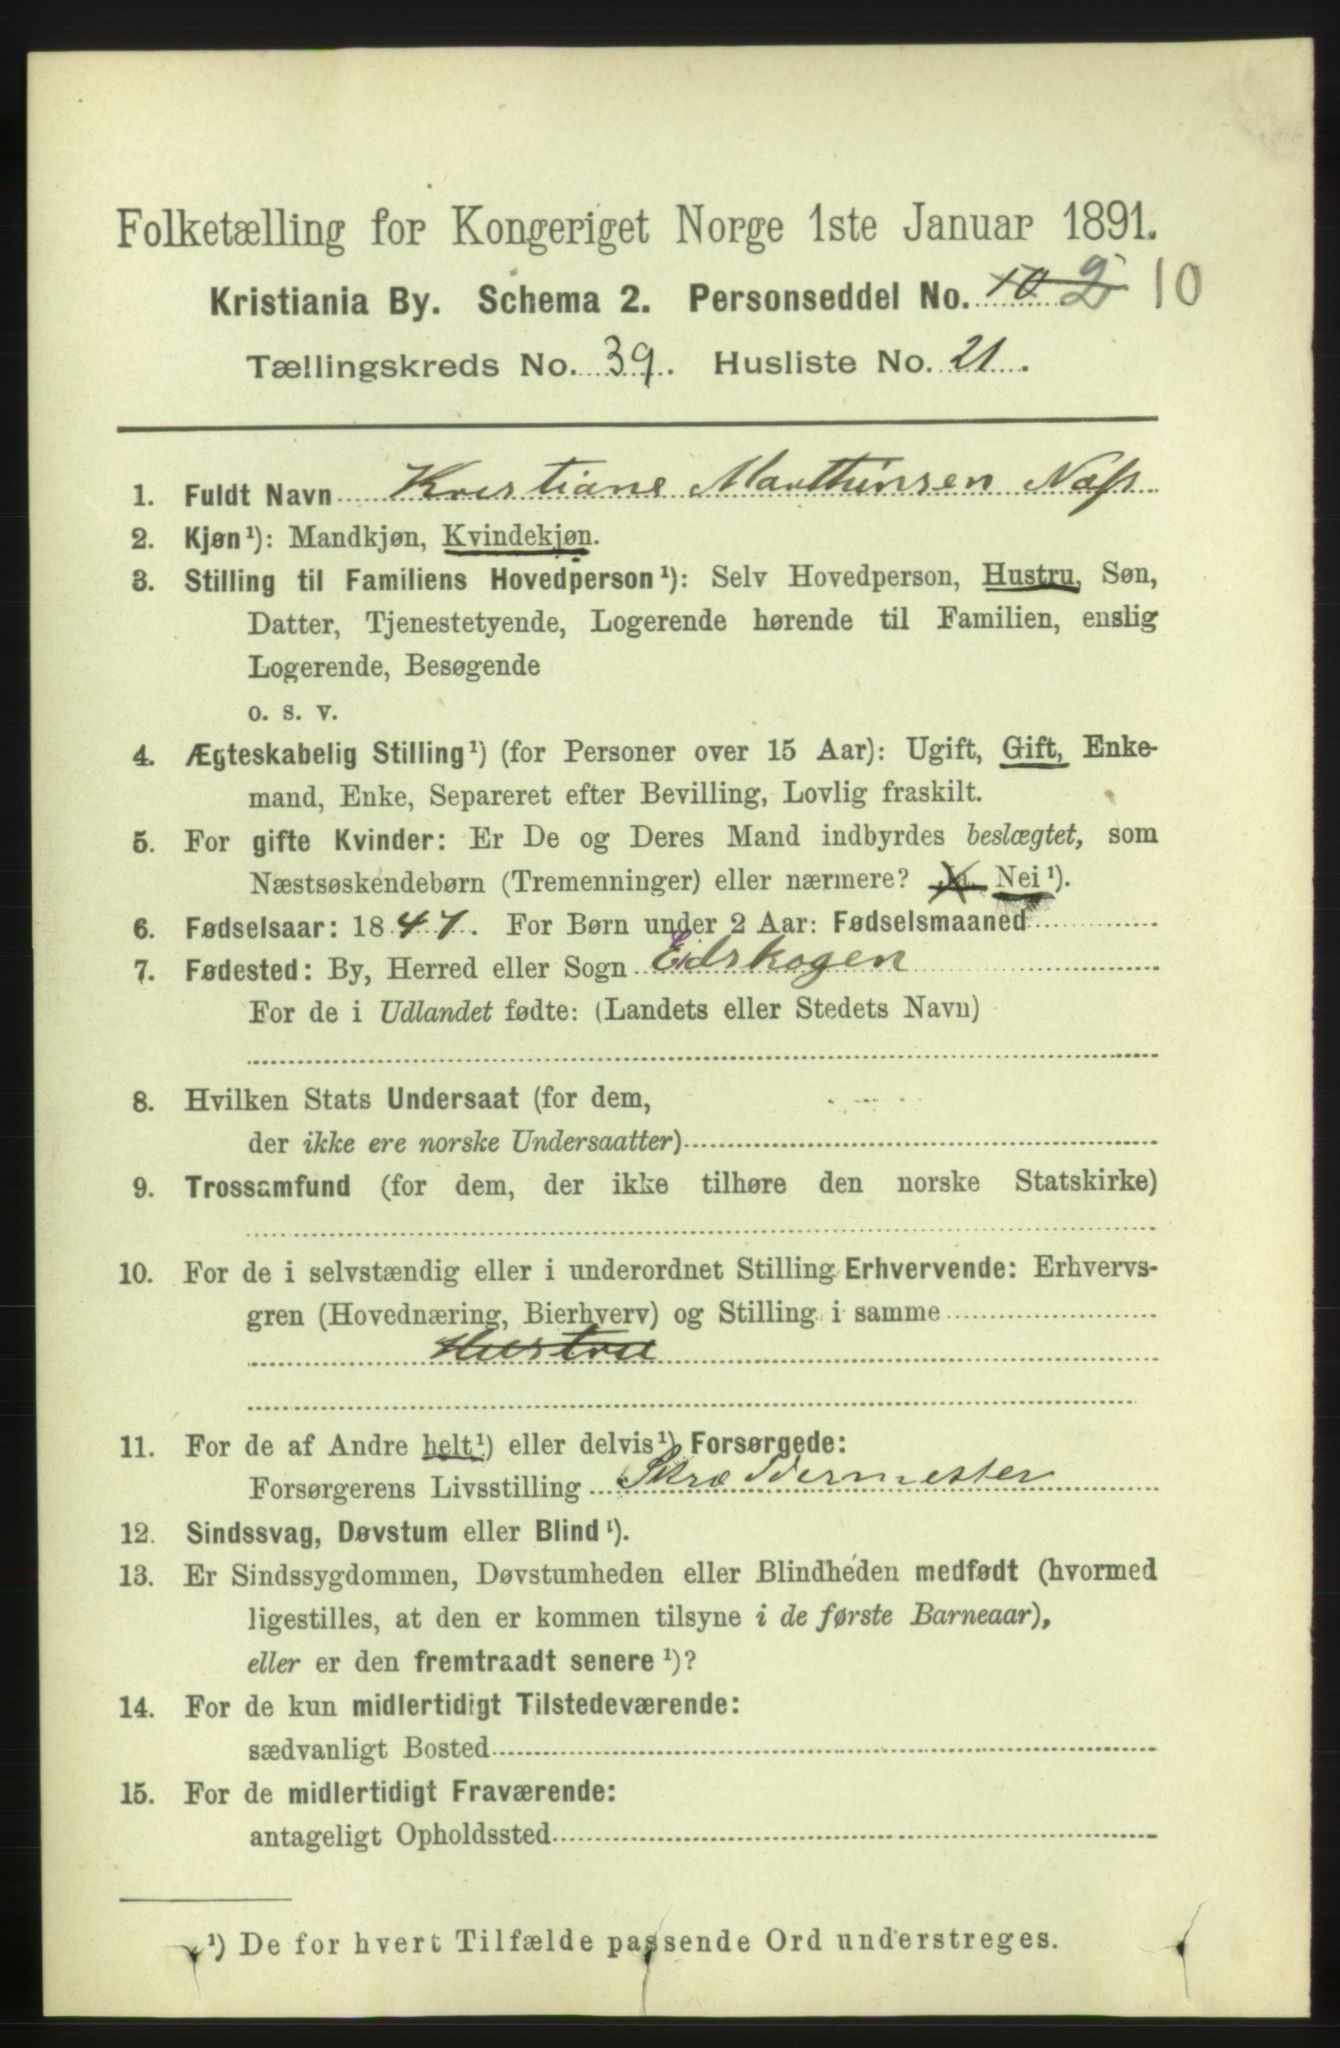 Folketælling for Kongeriget Norge 1ste Januar 1891.
Kristiania By. Schema 2. Personseddel No. 10 2 10
Tællingskreds No. 39. Husliste No. 21.
1. Fuldt Navn Kristiane Marthinsen Næss
2. Kjøn¹): Mandkjøn, Kvindekjøn.
3. Stilling til Familiens Hovedperson¹): Selv Hovedperson, Hustru, Søn,
Datter, Tjenestetyende, Logerende hørende til Familien, enslig
Logerende, Besøgende
o. s. v.
4. Ægteskabelig Stilling¹) (for Personer over 15 Aar): Ugift, Gift, Enke-
mand, Enke, Separeret efter Bevilling, Lovlig fraskilt.
5. For gifte Kvinder: Er De og Deres Mand indbyrdes beslægtet, som
Næstsøskendebørn (Tremenninger) eller nærmere? Ja. Nei¹).
6. Fødselsaar: 1847. For Børn under 2 Aar: Fødselsmaaned
7. Fødested: By, Herred eller Sogn Eidskogen
For de i Udlandet fødte: (Landets eller Stedets Navn)
8. Hvilken Stats Undersaat (for dem,
der ikke ere norske Undersaatter)
9. Trossamfund (for dem, der ikke tilhøre den norske Statskirke)
10. For de i selvstændig eller i underordnet Stilling Erhvervende: Erhvervs-
gren (Hovednæring, Bierhverv) og Stilling i samme
Hustru
11. For de af Andre helt¹) eller delvis¹) Forsørgede:
Forsørgerens Livsstilling Skræddermester
12. Sindssvag, Døvstum eller Blind¹).
13. Er Sindssygdommen, Døvstumheden eller Blindheden medfødt (hvormed
ligestilles, at den er kommen tilsyne i de første Barneaar),
eller er den fremtraadt senere¹)?
14. For de kun midlertidigt Tilstedeværende:
sædvanligt Bosted
15. For de midlertidigt Fraværende:
antageligt Opholdssted
¹) De for hvert Tilfælde passende Ord understreges.